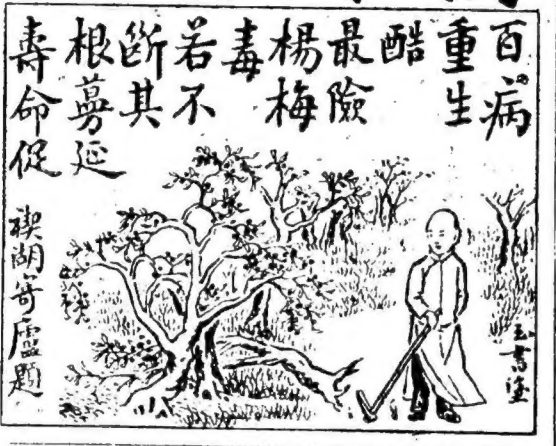 百病
重生
酷
最險
楊梅
毒
若不
斷其
根蔓延
壽命促
禊湖寄廬題
玉書塗